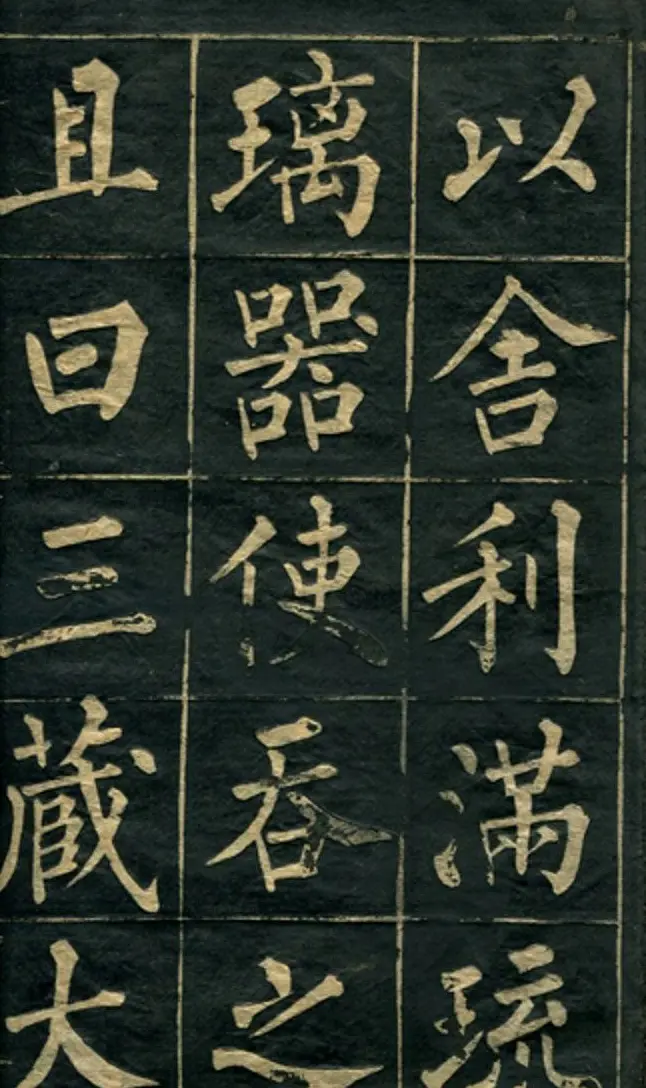 以舍利滿琉
璃器使吞之
且曰三藏大